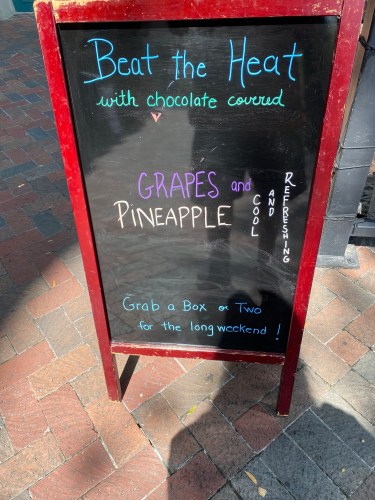 Beat the Heat
with chocolate covered
GRAPES and
PINEAPPLE
COOL
AND
REFRESHING
Grab a Box or Two
for the long weekend!